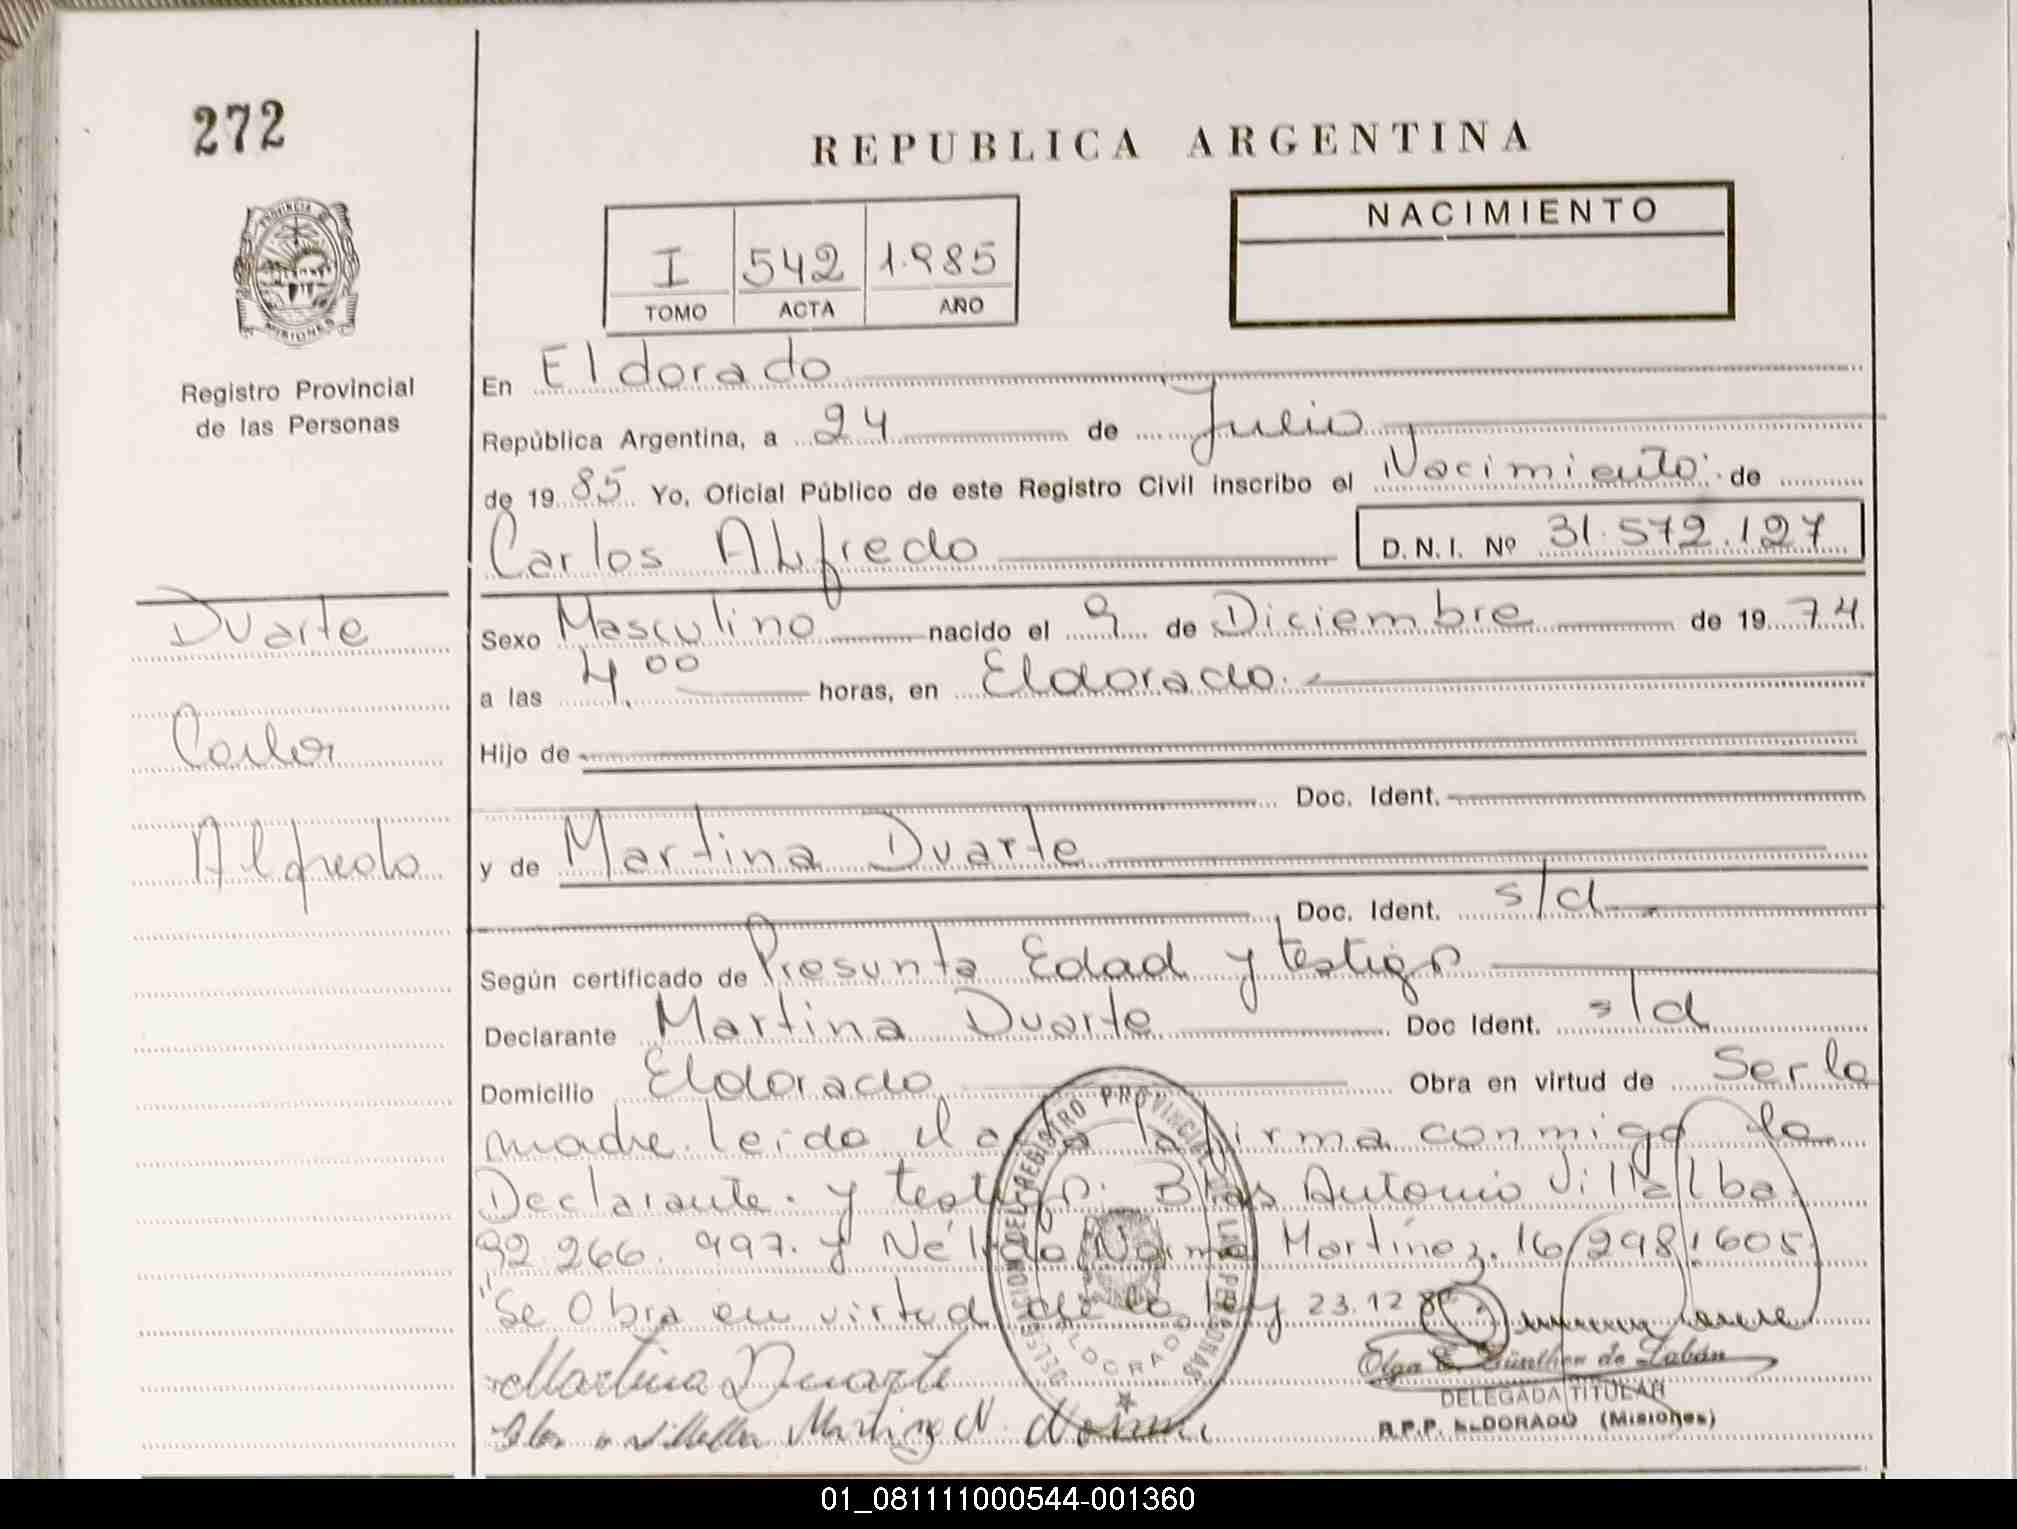 272
REPUBLICA ARGENTINA
PROVINCIA DE
MISIONES
Registro Provincial
de las Personas
I 542 1.985
TOMO ACTA AÑO
NACIMIENTO
En Eldorado
República Argentina, a 24 de Julio
de 19 85 Yo, Oficial Público de este Registro Civil inscribo el Nacimiento. de
Carlos Alfredo D.N.I. Nº 31.572.127
Duarte
Carlos
Alfredo
Sexo Masculino nacido el 9 de Diciembre de 19 74
a las 4.00 horas, en Eldorado.
Hijo de
Doc. Ident.
y de Martina Duarte
Doc. Ident. s/d
Según certificado de Presunta Edad y testigo
Declarante Martina Duarte Doc Ident. s/d
Domicilio Eldorado Obra en virtud de Ser la
madre. leido el acta la firma conmigo la
Declarante. y testigo: Blas Antonio Villalba.
92.266.997. y Nélida Norma Martínez. 16/298/605
"Se Obra en virtud de la ley 23.12
DELEGACION DEL REGISTRO PROVINCIAL DE LAS PERSONAS
ELDORADO
Martina Duarte
Olga E. Günther de Labán
DELEGADA TITULAR
R.P.P. ELDORADO (Misiones)
Villalba Martinez N. Norma
01_081111000544-001360